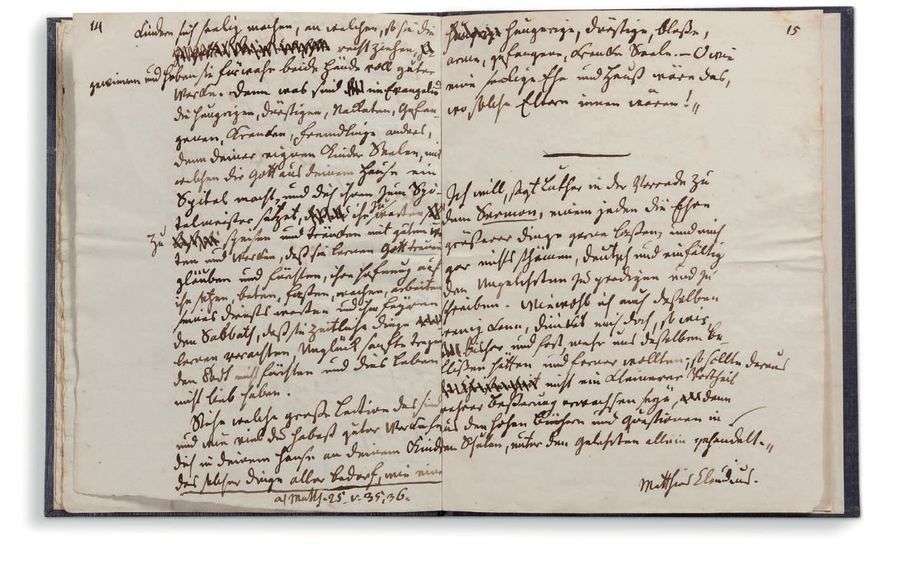 14
Kindern sich seelig machen, an welchen, so sie die
recht ziehen,
gewinnen und haben sie fürwahr beide Hände voll guter
Werke. Denn was sind im Evangelio
die hungrigen, durstigen, Nackten, Gefan-
genen, Kranken, Fremdlinge anders,
denn deiner eignen Kinder Seelen, mit
welchen dir Gott aus deinem Hause ein
Spital macht, und dich ihnen zum Spi-
talmeister setzet,
zu speisen und tränken mit guten Wor-
ten und Werken, daß sie lernen Gott trauen
glauben und fürchten, ihre Hofnung auf
ihn setzen, beten, fasten, wachen, arbeiten
seines Diensts warten und ihm feyern
den Sabbath, daß sie zeitliche Dinge
lernen verachten, Unglück sanfte tragen
den Tod nicht fürchten und dies Leben
nicht lieb haben.
Siehe welche große Lection das sind
und wie viel du habest guter Werke für
dich in deinem Hause an deinem Kinde
das solcher Dinge aller bedarf, wie eine
a) Matth. 25. v. 35, 36.
15
hungrige, durstige, bloße,
arme, gefangene, kranke Seele. – O wie
eine seelige Ehe und Hauß wäre das,
wo solche Eltern innen wären!„
Ich will, sagt Luther in der Vorrede zu
dem Sermon, einem jeden die Ehre
größerer Dinge gerne lassen, und mich
gar nichts schämen, deutsch und einfältig
den Ungelehrten zu predigen und zu
schreiben. Wiewohl ich auch desselben
wenig kann, dünkt mich doch, so wir
bisher und fort mehr uns desselben be-
flißen hätten und ferner wollten; es sollte daraus
nicht ein kleinerer Vortheil
Beßerung erwachsen seyn, denn
aus den hohen Büchern und Quästionen in
den Schulen, unter den Gelehrten allein gehandelt.„
Matthias Claudius.